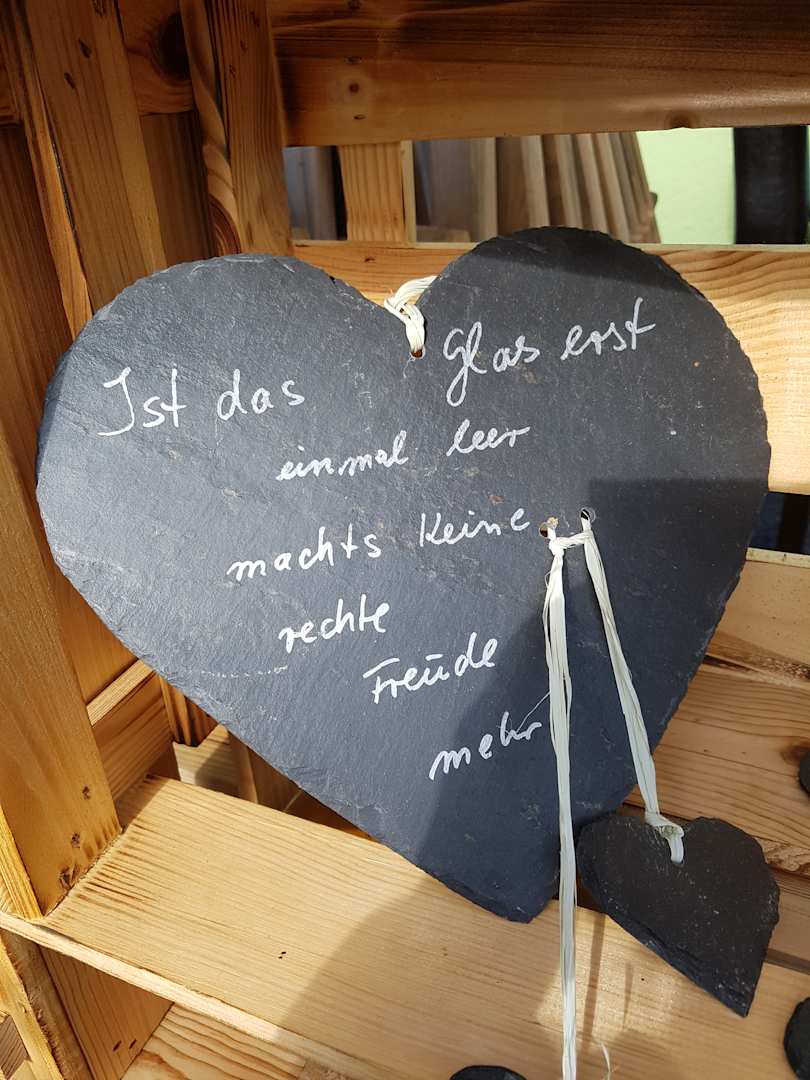 Ist das Glas erst
einmal leer
machts keine
rechte
Freude
mehr